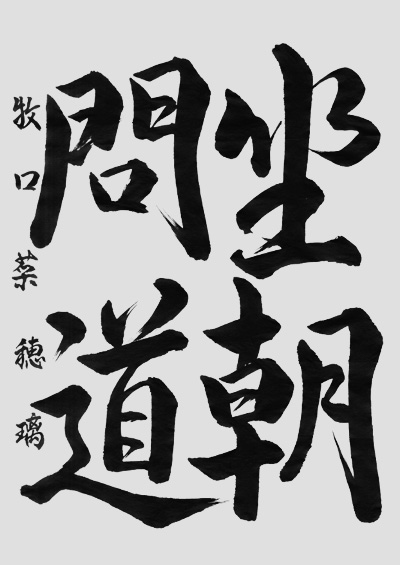 坐朝
問道
牧口菜穂璃